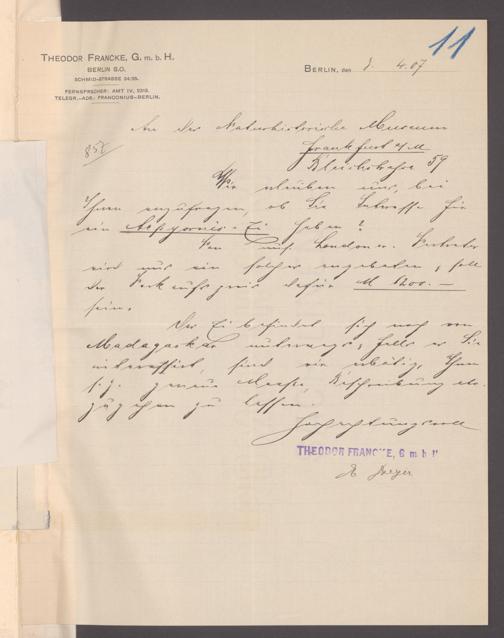 11
THEODOR FRANCKE, G. m. b. H.
BERLIN S.O.
SCHMID-STRASSE 24/25.
FERNSPRECHER: AMT IV,
TELEGR.-ADR.: FRANCONIUS-BERLIN.
BERLIN, den 8. 4. 07
857
An das Naturhistorische Museum
Frankfurt a/M
Bleichstrasse 59
Wir erlauben uns, bei
Ihnen anzufragen, ob Sie Interesse für
ein Aepyornis-Ei haben?
Von uns. Londoner Vertreter
wird uns ein solches angeboten, soll
der Verkaufspreis dafür M 1200.—
sein.
Das Ei befindet sich noch von
Madagaskar unterwegs, falls es Sie
interessirt, sind wir erbötig, Ihnen
s. Z. genaue Maasse, Beschreibung etc.
zugehen zu lassen.
Hochachtungsvoll
THEODOR FRANCKE, G m b H